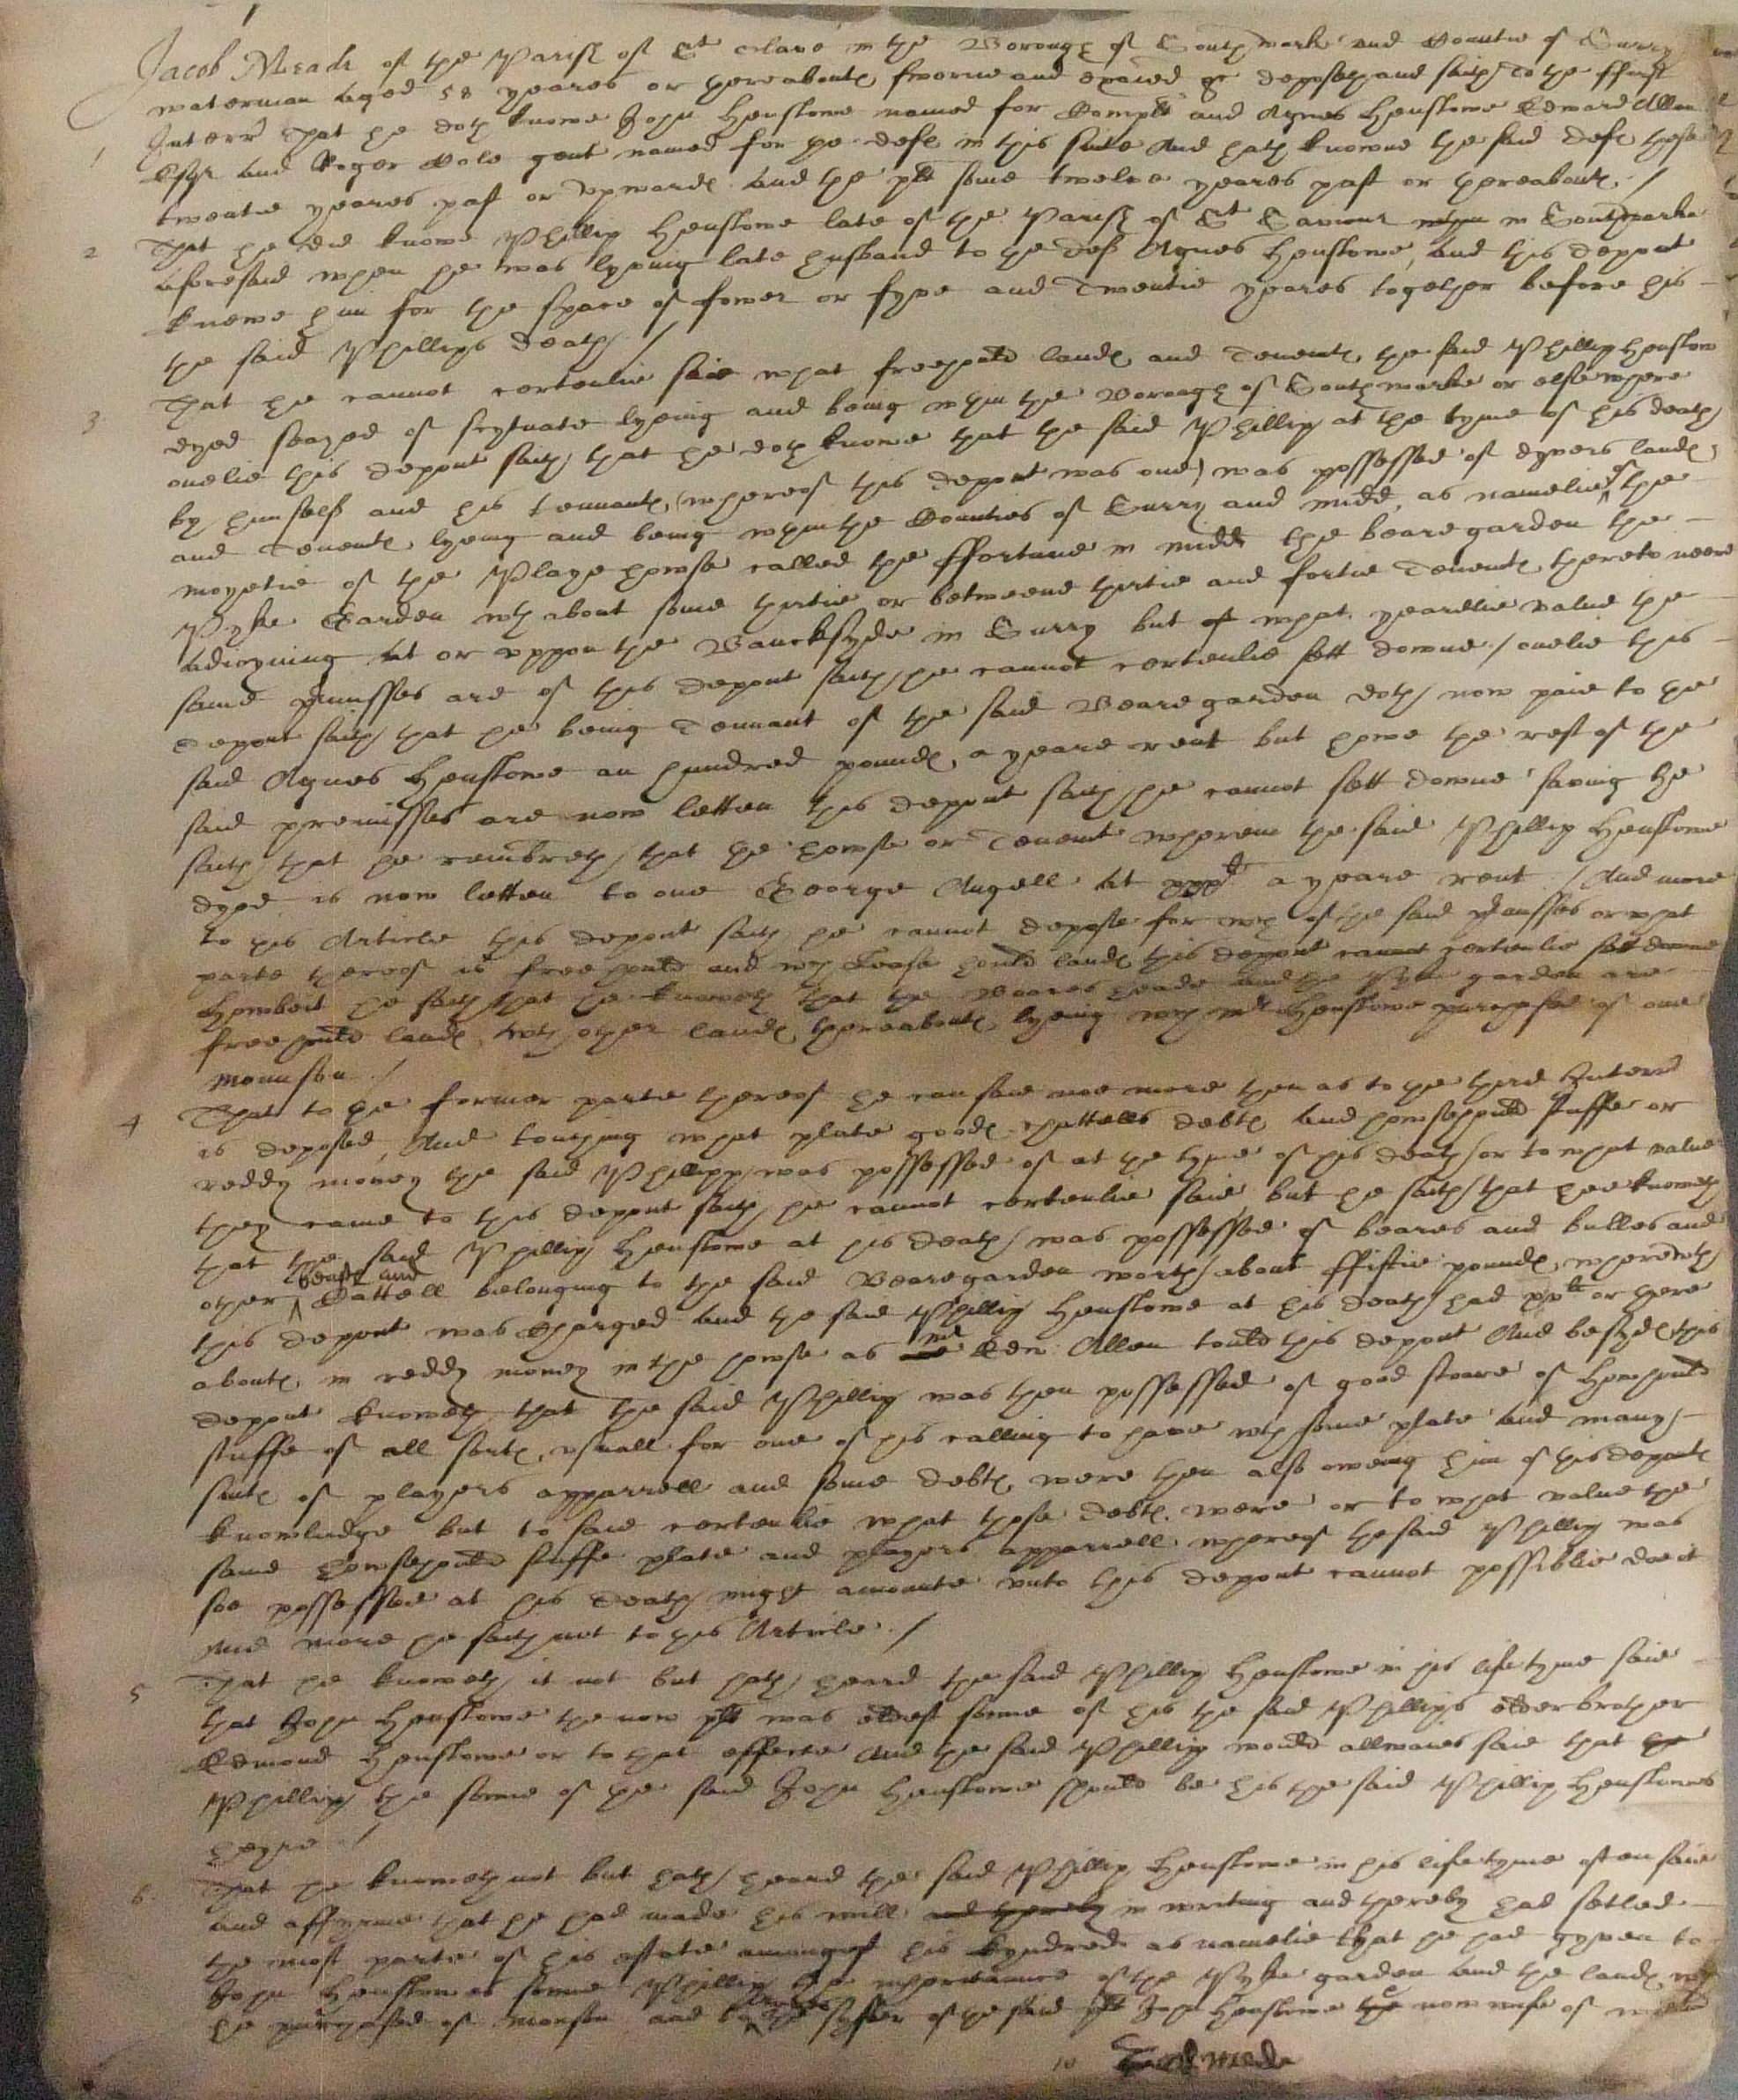 Jacob Meade of the Parish of St Olave in the Borough of Southwarke and Countie of Surrey
waterman aged 58 yeares or thereaboute sworne and exaied &c deposeth and saith To the ffirst
1 Interr That he doth knowe John Henslowe named for Complt and Agnes Henslowe Edward Allen
Esqr and Roger Cole gent named for the defte in this suite And hath knowne the said defte these
twentie yeares past or upwarde and the plt some twelve yeares past or thereaboute /
2 That he did knowe Phillip Henslowe late of the Parish of St Saviour in Southwarke
aforesaid when he was lyving late husband to the deft Agnes Henslowe, and this depont
knewe him for the space of fower or fyve and Twentie yeares together before his
the said Phillips death /
3 That he cannot certenlie saie what freehould lande and Tenemte the said Phillip Henslow
dyed seazed of scytuate lyeing and being within the Borough of Southwarke or elsewhere
onelie this depont saith that he doth knowe that the said Phillip at the tyme of his death
by himself and his tennante (whereof this depont was one) was possessed of dyvers lande
and Tenemte lyeing and being within the Counties of Surry and Midd, as namelie of the
moyetie of the Playe howse called the ffortune in Midd the beare garden the
Pyke Garden wth about some thirtie or betweene thirtie and fortie Tenemte thereto neere
adioyning at or uppon the Banckside in Surry but of what yearelie value the
same premisses are of this depont saith he cannot certenlie sett downe / onelie this
depont saith that he being Tennant of the said Beare garden doth now paie to the
said Agnes Henslowe an hundred pounde a yeare rent but howe the rest of the
said premisses are now letten this depont saith he cannot sett downe saving he
saith that he remembreth that the howse or Tenemt wherein the said Phillip Henslowe
dyed is now letten to one George Angell at xxxli a yeare rent / And more
to this Article this depont saith he cannot depose for wch of the said premisses or what
parte thereof is freehould and wch Lease hould lande this depont cannot certenlie sett downe
Howbeit he saith that he knoweth that the Beares heade and the Pyke garden are
freehould lande wth other lande thereaboute lyeing wch mr Henslowe purchased of one
Mounson /
4 That to the former parte thereof he can saie noe more then as to the third Interr
is deposed, And touching what plate goode chattells debte and howsehould stuffe or
reddy money the said Phillipp was possessed of at the tyme of his death or to what value
they came to this depont saith he cannot certenlie saie but he saith that hee knoweth
that the said Phillip Henslowe at his death was possessed of beares and bulles and
other beaste and Cattell belonging to the said Beare garden worth about ffiftie pounde, wherewth
this depont was Charged and the said Phillip Henslowe at his death had xxli or there
aboute in reddy money in the howse as mr Edw Allen tould this depont And besyde this
depont knoweth that the said Phillip was then possessed of good stoare of Howshould
stuffe of all sorte usuall for one of his calling to have wth some plate and many
sute of players apparrell and some debte were then also oweing him of his deponte
knowledge but to saie certenlie what those debte were or to what value the
same howsehould stuffe plate and players apparrell whereof the said Phillip was
soe possessed at his death might amounte unto this depont cannot possiblie doe it
And more he saith not to this Article /
5 That he knoweth it not but hath heard the said Phillip Henslowe in his life tyme saie
that John Henslowe the now plt was eldest sonne of his the said Phillips elder brother
Edmond Henslowe or to that effecte And the said Phillip would allwaies saie that the
Phillip the sonne of the said John Henslowe should be his the said Phillip Henslowes
heyre /
6 That he knoweth not but hath heard the said Phillip Henslowe in his life tyme often saie
and affyrme that he had made his will and thereby in writing and thereby had setled
the most parte of his estate amongest his kyndred as namelie that he had gyven to
John Henslowes sonne Phillip the inheritance of the Pyke garden and the lande wch
he purchased of Monson and to the syster of the said plt John Henslowe the now wife of